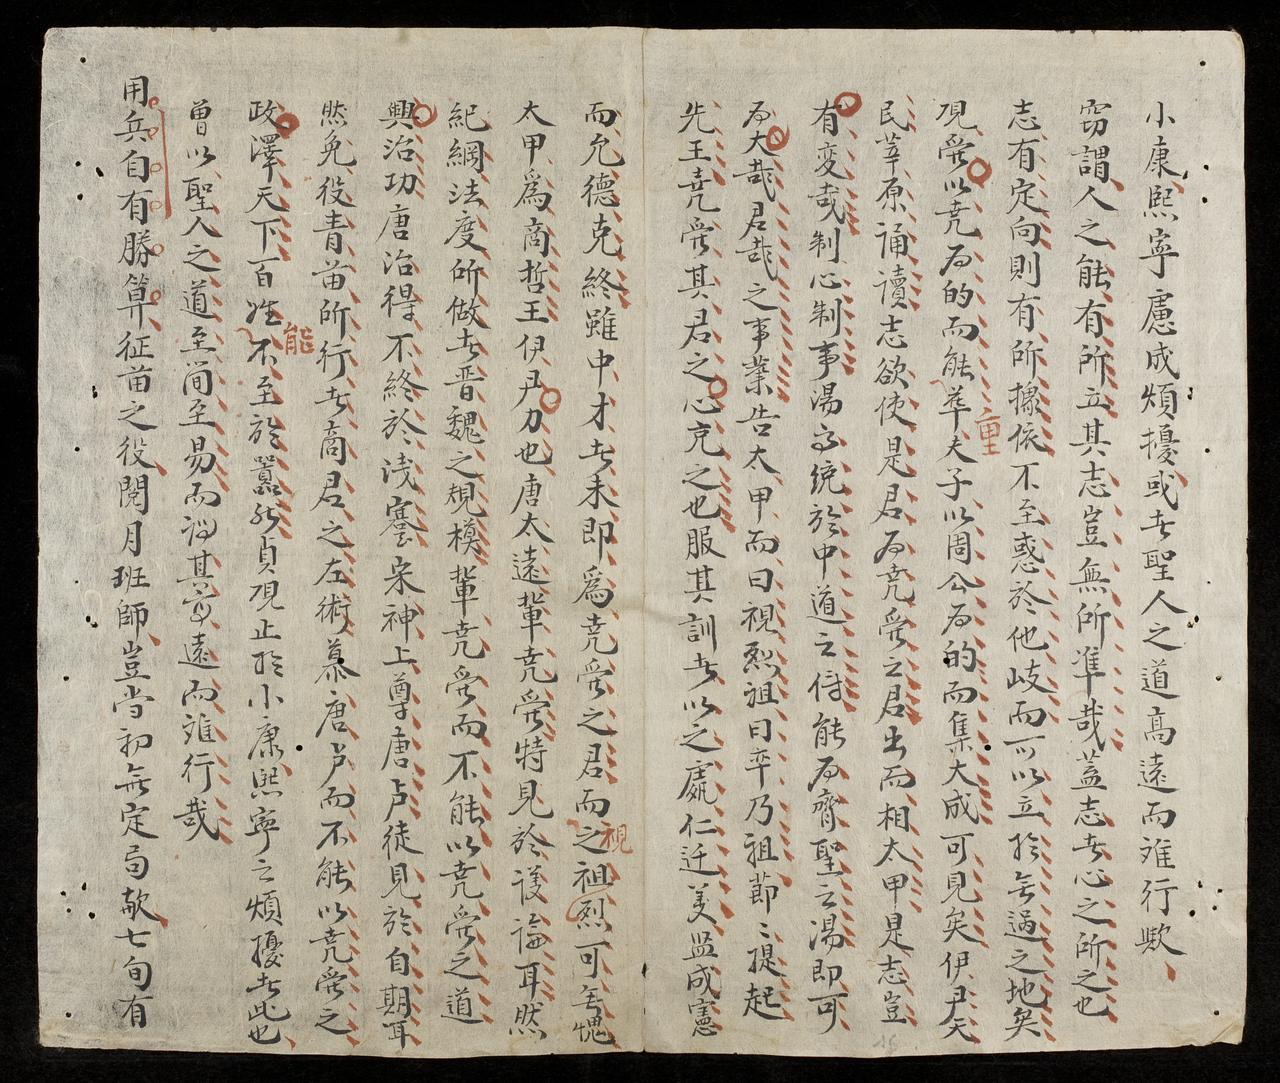 小康熙寧慮成煩擾或者聖人之道高遠而难行歟
窃謂人之能有所立其志豈無所準哉蓋志者心之所之也
志有定向則有所據依不至惑於他岐而可以立於無過之地矣
以堯為的而能華夫子以周公為的而集大成可見矣伊尹天
民莘原誦讀志欲使是君為堯舜之君出而相太甲是志豈
有変哉制心制事湯之統於中道之能為齊聖之湯即可
為大哉君哉之事業告太甲而曰視烈祖曰乃祖節〻提起
先王堯舜其君之心克之也服其訓者以之處仁迁美监成憲
而允德克終雖中才者未即為堯舜之君而之祖烈可無愧
視
太甲為商哲王伊尹力也唐太遠輩堯舜特見於議論耳然
紀綱法度所做者晋魏之規模輩堯舜而不能以堯舜之道
興治功唐治得不終於浅宋神上尊唐卢徒見於自期耳
然免役青苗所行者商君之左術慕唐卢而不能以堯舜之
政澤天下百姓不至於嚣然貞观止於小康熙寧之煩擾者此也
能
曾以聖人之道至简至易而謂其高遠而难行哉
用兵自有勝算征苗之役閱月班師豈當初無定局歟七旬有
重